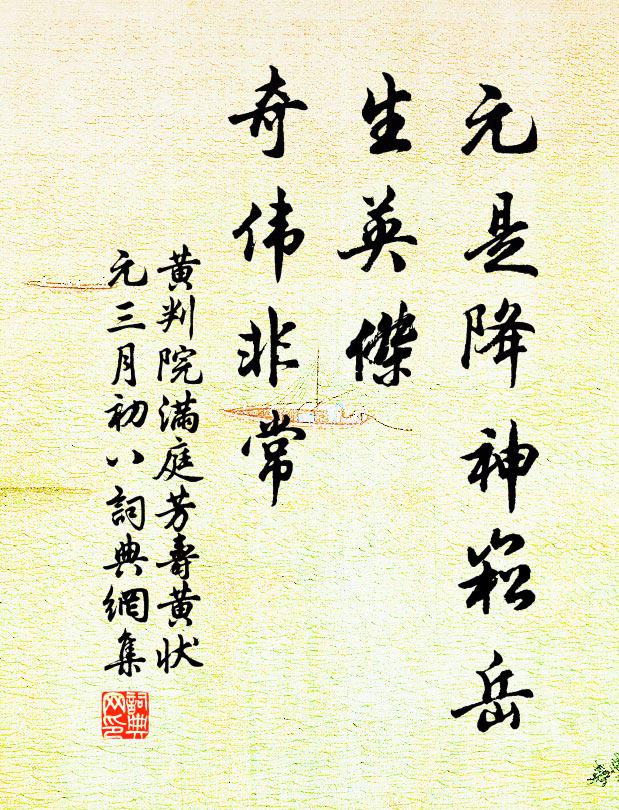 元是降神崧岳
生英傑
奇伟非常
黄判院满庭芳壽黄状
元三月初八詞典網集
詞典
网印